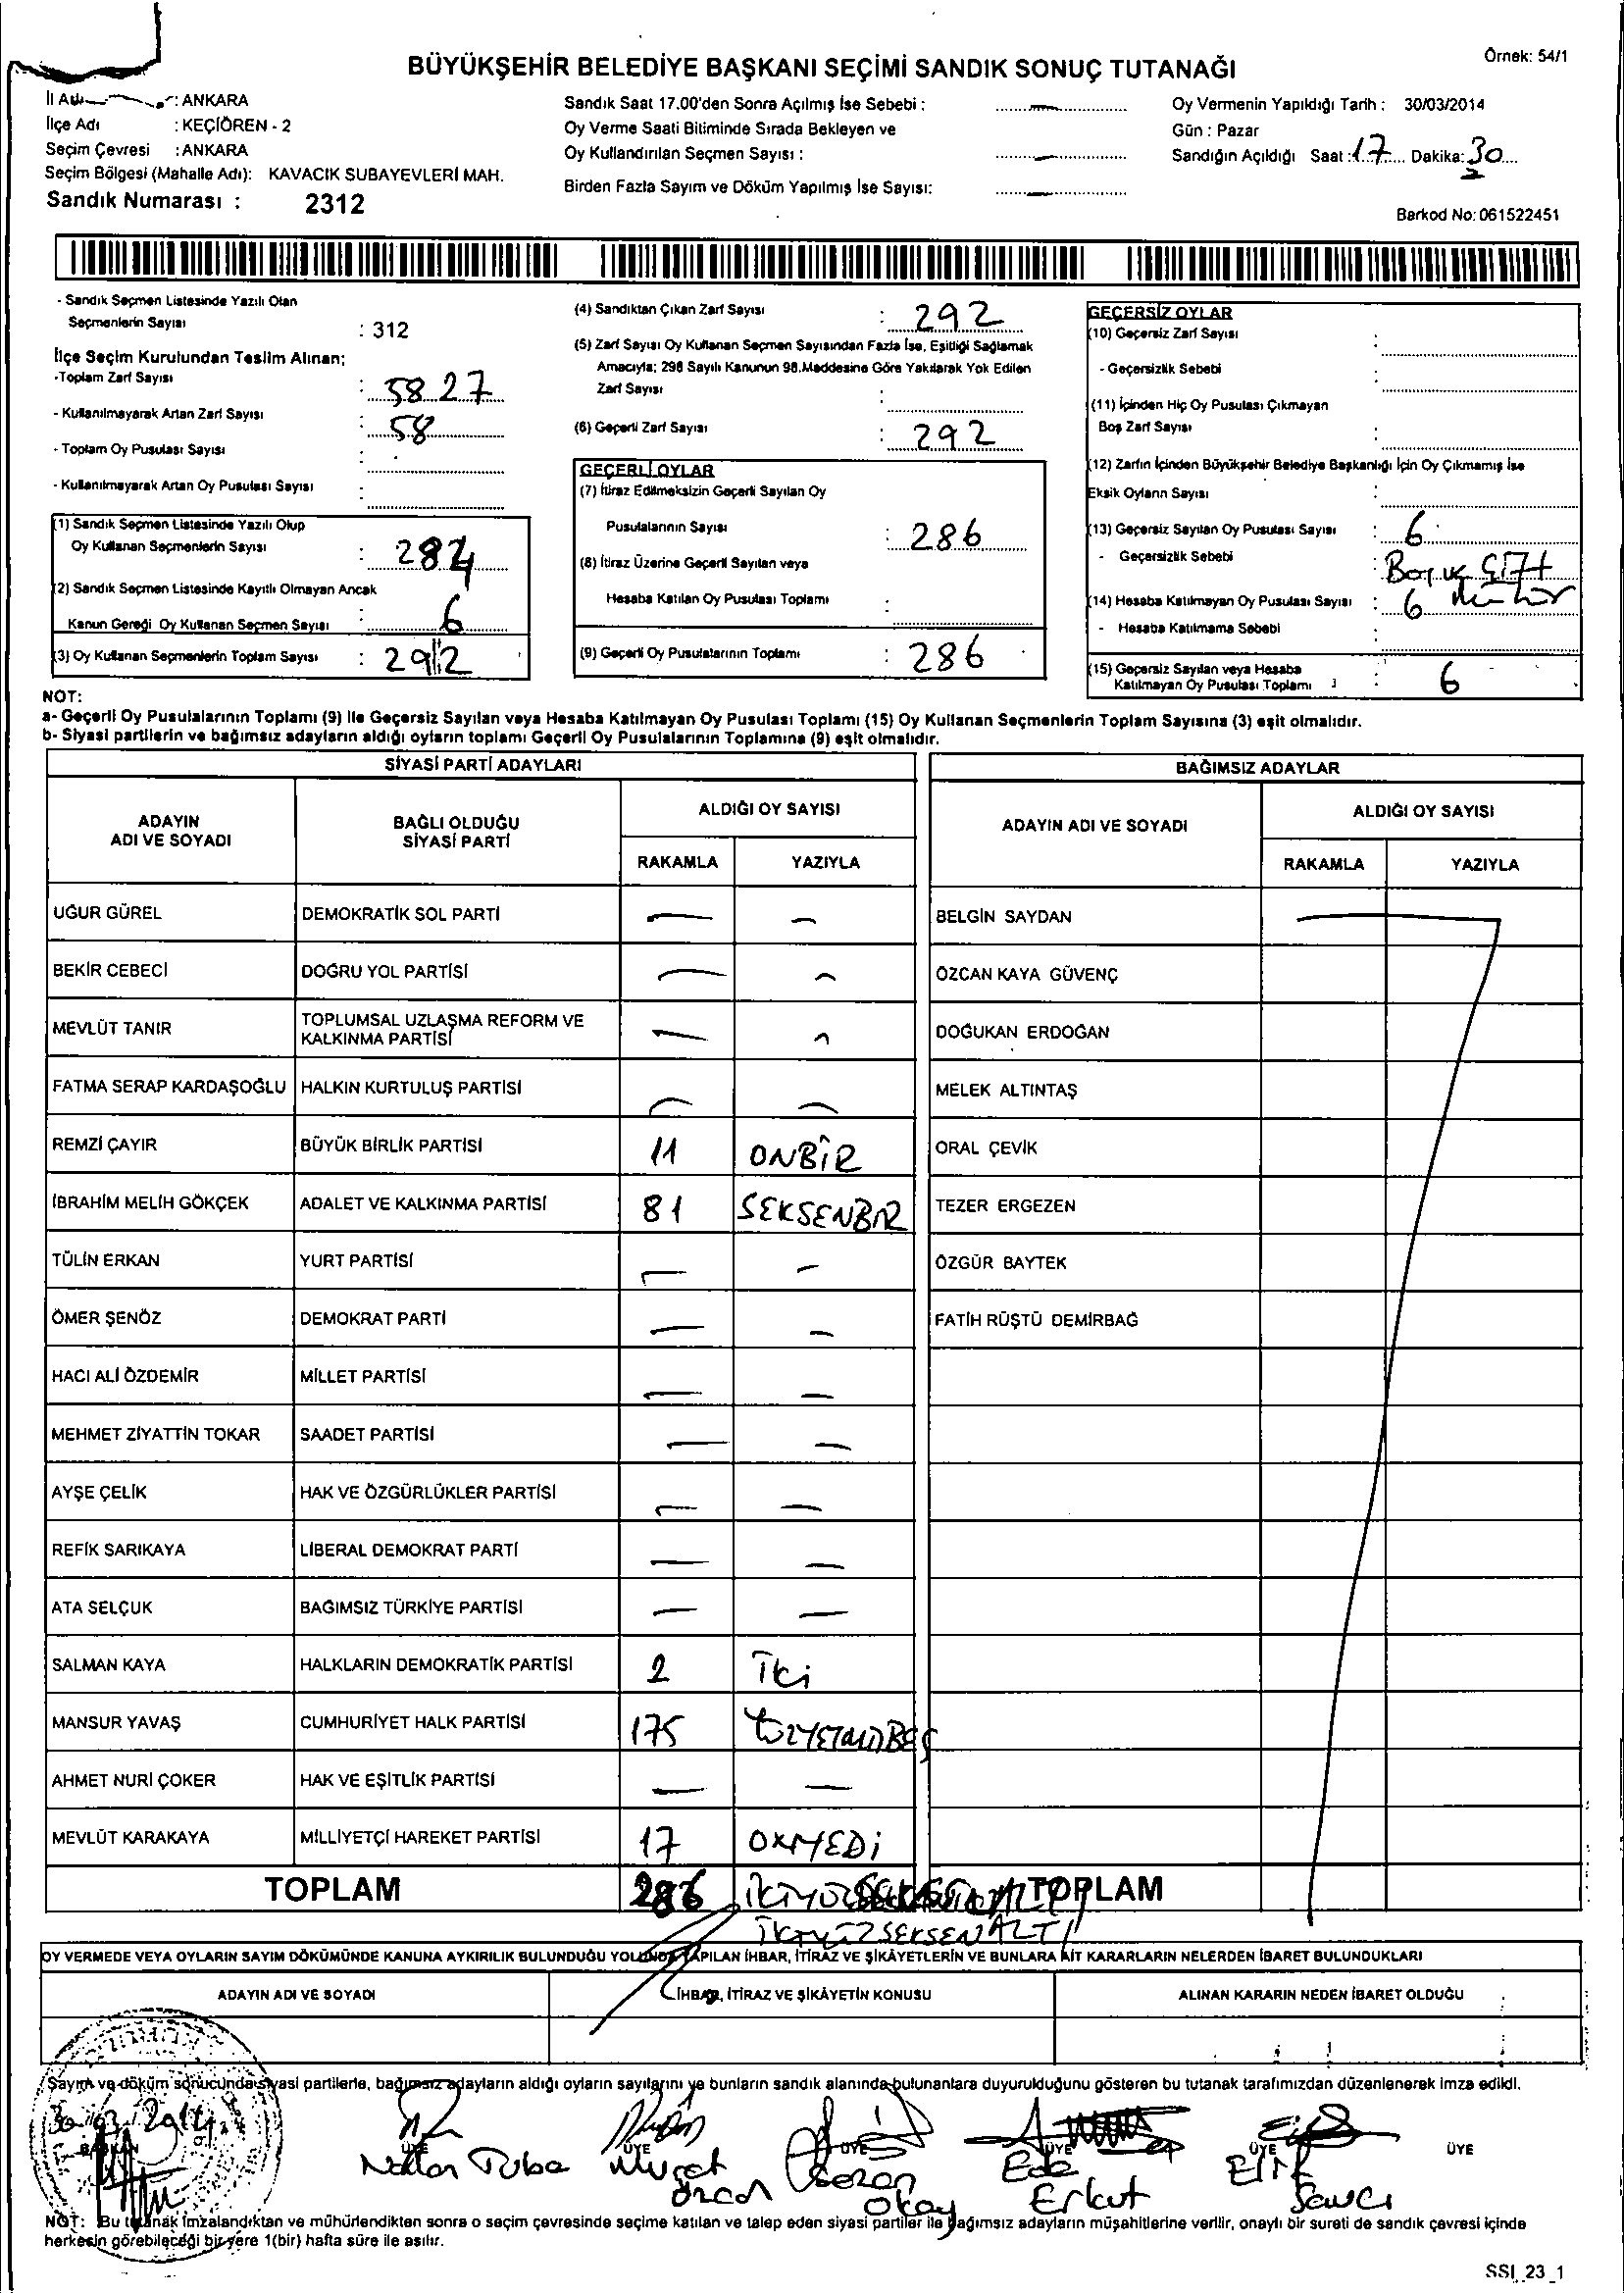 Örnek: 54/1
BÜYÜKŞEHİR BELEDİYE BAŞKANI SEÇİMİ SANDIK SONUÇ TUTANAĞI
: ANKARA
İlçe Adı : KEÇİÖREN - 2
Seçim Çevresi : ANKARA
Seçim Bölgesi (Mahalle Adı): KAVACIK SUBAYEVLERİ MAH.
Sandık Numarası : 2312
Sandık Saat 17.00'den Sonra Açılmış İse Sebebi :
Oy Verme Saati Bitiminde Sırada Bekleyen ve
Oy Kullandırılan Seçmen Sayısı :
Birden Fazla Sayım ve Döküm Yapılmış İse Sayısı:
Oy Vermenin Yapıldığı Tarih : 30/03/2014
Gün : Pazar
Sandığın Açıldığı Saat : 17 Dakika: 30
Barkod No: 061522451
- Sandık Seçmen Listesinde Yazılı Olan
Seçmenlerin Sayısı : 312
İlçe Seçim Kurulundan Teslim Alınan;
-Toplam Zarf Sayısı :
- Kullanılmayarak Artan Zarf Sayısı : 58
- Toplam Oy Pusulası Sayısı :
- Kullanılmayarak Artan Oy Pusulası Sayısı :
(1) Sandık Seçmen Listesinde Yazılı Olup
Oy Kullanan Seçmenlerin Sayısı :
(2) Sandık Seçmen Listesinde Kayıtlı Olmayan Ancak
Kanun Gereği Oy Kullanan Seçmen Sayısı : 6
(3) Oy Kullanan Seçmenlerin Toplam Sayısı : 292
(4) Sandıktan Çıkan Zarf Sayısı : 292
(5) Zarf Sayısı Oy Kullanan Seçmen Sayısından Fazla İse, Eşitliği Sağlamak
Amacıyla; 298 Sayılı Kanunun 98.Maddesine Göre Yakılarak Yok Edilen
Zarf Sayısı :
(6) Geçerli Zarf Sayısı : 292
GEÇERLİ OYLAR
(7) İtiraz Edilmeksizin Geçerli Sayılan Oy
Pusulalarının Sayısı : 286
(8) İtiraz Üzerine Geçerli Sayılan veya
Hesaba Katılan Oy Pusulası Toplamı :
(9) Geçerli Oy Pusulalarının Toplamı : 286
GEÇERSİZ OYLAR
(10) Geçersiz Zarf Sayısı :
- Geçersizlik Sebebi :
(11) İçinden Hiç Oy Pusulası Çıkmayan
Boş Zarf Sayısı :
(12) Zarfın İçinden Büyükşehir Belediye Başkanlığı İçin Oy Çıkmamış İse
Eksik Oyların Sayısı :
(13) Geçersiz Sayılan Oy Pusulası Sayısı : 6
- Geçersizlik Sebebi : Boş ve Çift
(14) Hesaba Katılmayan Oy Pusulası Sayısı : 6 Mühür
- Hesaba Katılmama Sebebi :
(15) Geçersiz Sayılan veya Hesaba
Katılmayan Oy Pusulası Toplamı : 6
NOT:
a- Geçerli Oy Pusulalarının Toplamı (9) ile Geçersiz Sayılan veya Hesaba Katılmayan Oy Pusulası Toplamı (15) Oy Kullanan Seçmenlerin Toplam Sayısına (3) eşit olmalıdır.
b- Siyasi partilerin ve bağımsız adayların aldığı oyların toplamı Geçerli Oy Pusulalarının Toplamına (9) eşit olmalıdır.
SİYASİ PARTİ ADAYLARI
ADAYIN
ADI VE SOYADI
BAĞLI OLDUĞU
SİYASİ PARTİ
ALDIĞI OY SAYISI
RAKAMLA YAZIYLA
UĞUR GÜREL DEMOKRATİK SOL PARTİ — —
BEKİR CEBECİ DOĞRU YOL PARTİSİ — —
MEVLÜT TANIR TOPLUMSAL UZLAŞMA REFORM VE
KALKINMA PARTİSİ — —
FATMA SERAP KARDAŞOĞLU HALKIN KURTULUŞ PARTİSİ — —
REMZİ ÇAYIR BÜYÜK BİRLİK PARTİSİ 11 ONBİR
İBRAHİM MELİH GÖKÇEK ADALET VE KALKINMA PARTİSİ 81 SEKSENBİR
TÜLİN ERKAN YURT PARTİSİ — —
ÖMER ŞENÖZ DEMOKRAT PARTİ — —
HACI ALİ ÖZDEMİR MİLLET PARTİSİ — —
MEHMET ZİYATTİN TOKAR SAADET PARTİSİ — —
AYŞE ÇELİK HAK VE ÖZGÜRLÜKLER PARTİSİ — —
REFİK SARIKAYA LİBERAL DEMOKRAT PARTİ — —
ATA SELÇUK BAĞIMSIZ TÜRKİYE PARTİSİ — —
SALMAN KAYA HALKLARIN DEMOKRATİK PARTİSİ 2 İki
MANSUR YAVAŞ CUMHURİYET HALK PARTİSİ 175 YÜZYETMİŞBEŞ
AHMET NURİ ÇOKER HAK VE EŞİTLİK PARTİSİ — —
MEVLÜT KARAKAYA MİLLİYETÇİ HAREKET PARTİSİ 17 ONYEDİ
TOPLAM 286
İKİYÜZSEKSENALTI
BAĞIMSIZ ADAYLAR
ADAYIN ADI VE SOYADI
ALDIĞI OY SAYISI
RAKAMLA YAZIYLA
BELGİN SAYDAN
ÖZCAN KAYA GÜVENÇ
DOĞUKAN ERDOĞAN
MELEK ALTINTAŞ
ORAL ÇEVİK
TEZER ERGEZEN
ÖZGÜR BAYTEK
FATİH RÜŞTÜ DEMİRBAĞ
TOPLAM
OY VERMEDE VEYA OYLARIN SAYIM DÖKÜMÜNDE KANUNA AYKIRILIK BULUNDUĞU YOLUNDA YAPILAN İHBAR, İTİRAZ VE ŞİKÂYETLERİN VE BUNLARA AİT KARARLARIN NELERDEN İBARET BULUNDUKLARI
ADAYIN ADI VE SOYADI İHBAR, İTİRAZ VE ŞİKÂYETİN KONUSU ALINAN KARARIN NEDEN İBARET OLDUĞU
Sayım ve döküm sonucunda siyasi partilerle, bağımsız adayların aldığı oyların sayılarını ve bunların sandık alanında bulunanlara duyurulduğunu gösteren bu tutanak tarafımızdan düzenlenerek imza edildi.
30/03/2014
BAŞKAN ÜYE ÜYE ÜYE ÜYE ÜYE ÜYE
Tuba Murat Sezen Eda Elif
Özcan Okay Erkut Savcı
NOT: Bu tutanak imzalandıktan ve mühürlendikten sonra o seçim çevresinde seçime katılan ve talep eden siyasi partiler ile bağımsız adayların müşahitlerine verilir, onaylı bir sureti de sandık çevresi içinde
herkesin görebileceği bir yere 1(bir) hafta süre ile asılır.
SSI_23_1